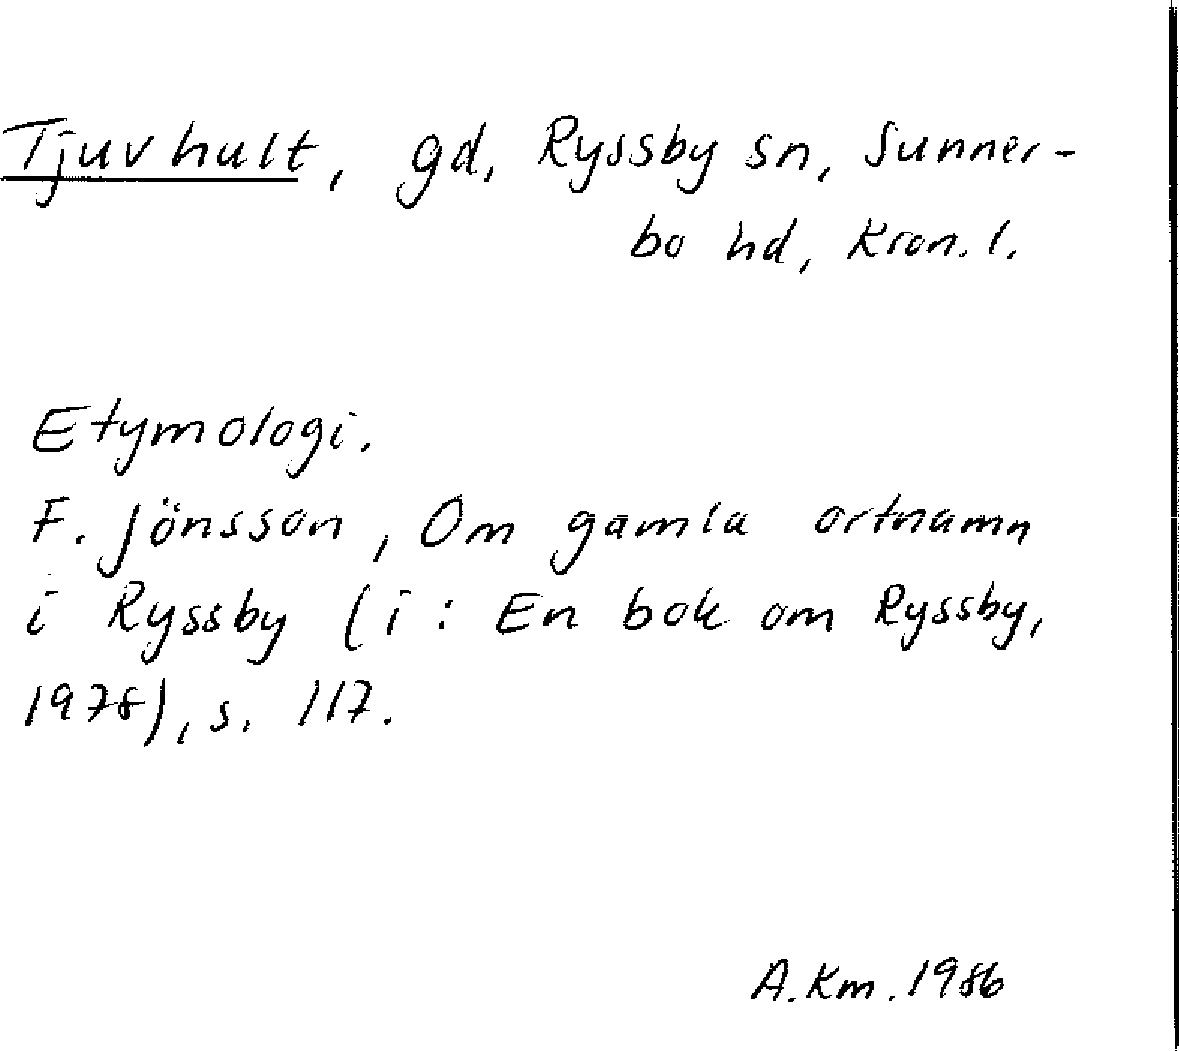 Tjuvhult, gd, Ryssby sn, Sunner-
bo hd, Kron. l.
Etymologi.
F. Jönsson, Om gamla ortnamn
i Ryssby (i: En bok om Ryssby,
1978), s. 117.
A. Km. 1986